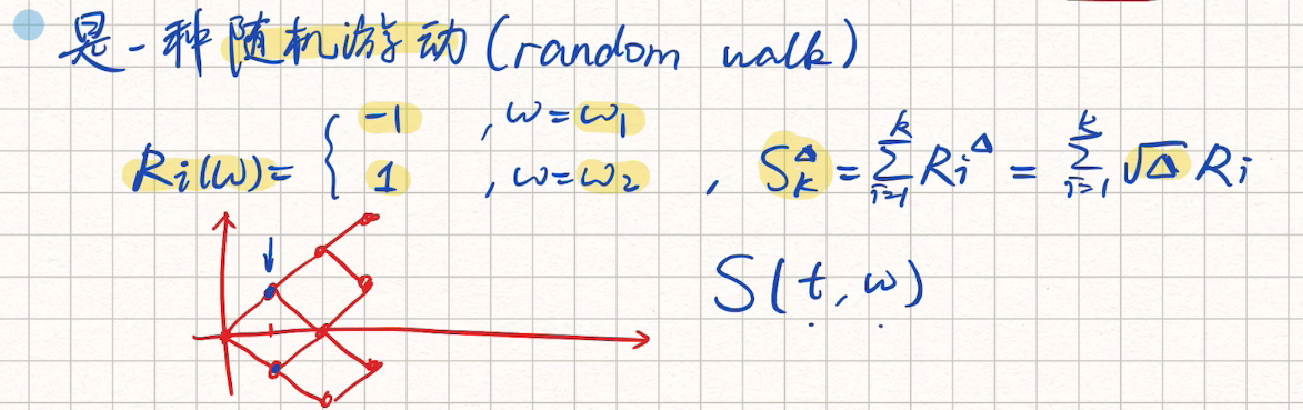 是一种随机游动(random walk)
Ri(ω)= { -1 , ω=ω₁
1 , ω=ω₂ , S_k^Δ = Σ_{i=1}^k Ri^Δ = Σ_{i=1}^k √Δ Ri
S(t,ω)